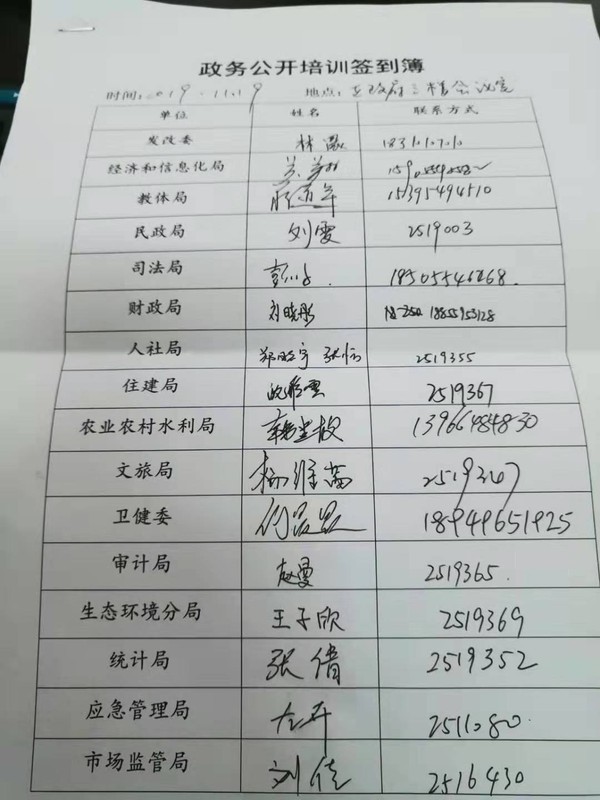 政务公开培训签到簿
时间：2019.11.19 地点：区政府三楼会议室
单位 姓名 联系方式
发改委 林
经济和信息化局
教体局 15395494510
民政局 刘雯 2519003
司法局 18505546268.
财政局 刘晓彤 18855953128
人社局 郑 宁 张怡 2519355
住建局 2519367
农业农村水利局 13966484830
文旅局 杨维茜 2519367
卫健委 18949651925
审计局 赵曼 2519365.
生态环境分局 王子欣 2519369
统计局 张倩 2519352
应急管理局 2511080.
市场监管局 刘佳 2516430